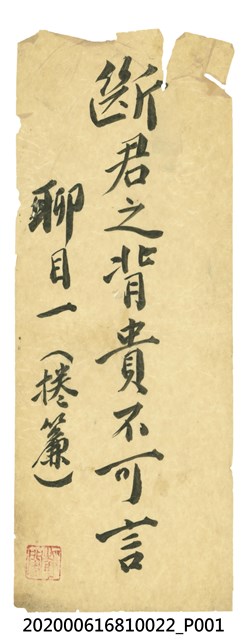 斷君之背貴不可言
聊目一（捲簾）
202000616810022_P001